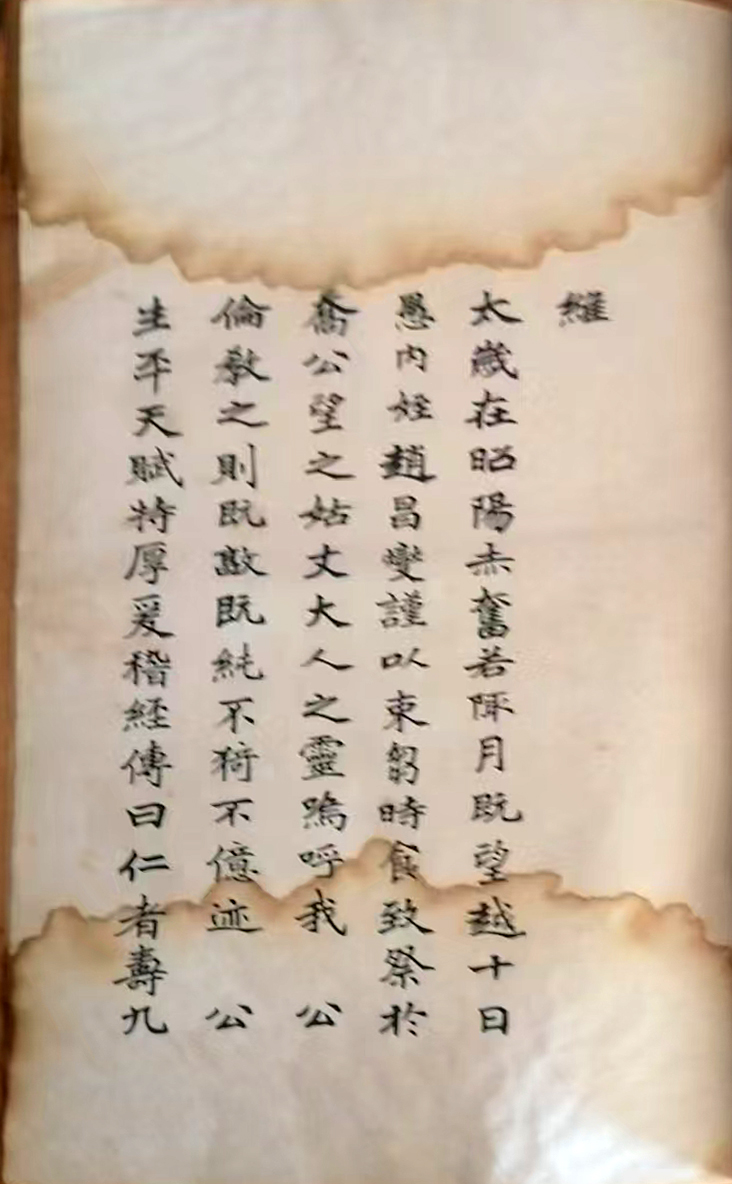 維
太歲在昭陽赤奮若陬月既望越十日
愚內姪趙昌燮謹以束芻時食致祭於
喬公望之姑丈大人之靈鳴呼我 公
倫敦之則既敬既純不猗不億迹 公
生平天賦特厚爰稽經傳曰仁者壽九